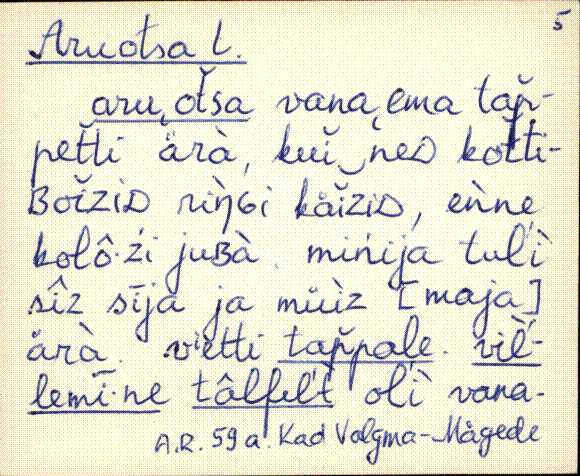 5
Aruotsa t.
aru͔otša vana͔ema tap̆-
pet̆ti ärà, kuĭ‿ned kot̆ti-
ʙoĭziᴅ riŋ̀ɢi käĭziᴅ, eǹne
kolô·źi juʙà. mińija tulì
sîz sīja ja müìz [maja]
ärà. vìetti tap̆pale. vil̀-
lemī·ne tâlfel't olì vana-
A.R. 59 a. Kad Valgma-Mägede